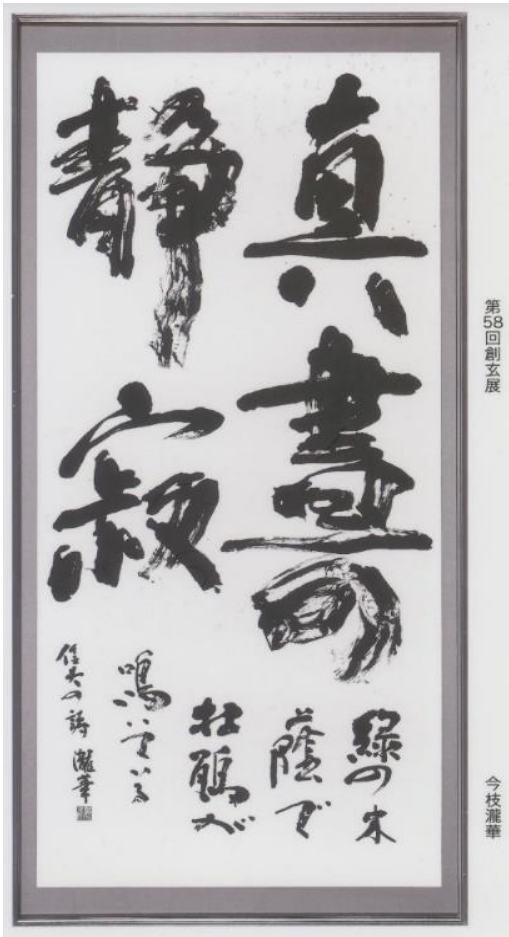 真晝の
静寂
緑の木
蔭で
杜鵑が
鳴いている
の詩 瀧華
第58回創玄展
今枝瀧華